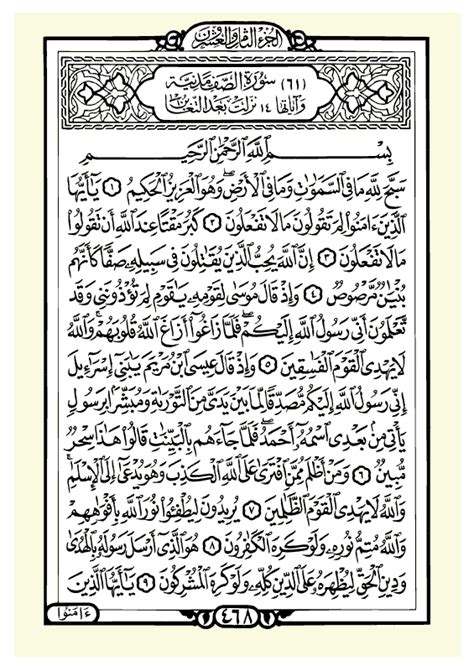 الجزء الثامن والعشرون
(٦١) سورة الصف مدنية
وآياتها ١٤ نزلت بعد التغابن
بِسْمِ اللَّهِ الرَّحْمَٰنِ الرَّحِيمِ
سَبَّحَ لِلَّهِ مَا فِي السَّمَٰوَٰتِ وَمَا فِي الْأَرْضِ ۖ وَهُوَ الْعَزِيزُ الْحَكِيمُ ۝١ يَٰٓأَيُّهَا
الَّذِينَ ءَامَنُوا لِمَ تَقُولُونَ مَا لَا تَفْعَلُونَ ۝٢ كَبُرَ مَقْتًا عِندَ اللَّهِ أَن تَقُولُوا
مَا لَا تَفْعَلُونَ ۝٣ إِنَّ اللَّهَ يُحِبُّ الَّذِينَ يُقَٰتِلُونَ فِي سَبِيلِهِ صَفًّا كَأَنَّهُم
بُنْيَٰنٌ مَّرْصُوصٌ ۝٤ وَإِذْ قَالَ مُوسَىٰ لِقَوْمِهِ يَٰقَوْمِ لِمَ تُؤْذُونَنِي وَقَد
تَّعْلَمُونَ أَنِّي رَسُولُ اللَّهِ إِلَيْكُمْ ۖ فَلَمَّا زَاغُوٓا أَزَاغَ اللَّهُ قُلُوبَهُمْ ۚ وَاللَّهُ
لَا يَهْدِي الْقَوْمَ الْفَٰسِقِينَ ۝٥ وَإِذْ قَالَ عِيسَى ابْنُ مَرْيَمَ يَٰبَنِيٓ إِسْرَٰٓءِيلَ
إِنِّي رَسُولُ اللَّهِ إِلَيْكُم مُّصَدِّقًا لِّمَا بَيْنَ يَدَيَّ مِنَ التَّوْرَىٰةِ وَمُبَشِّرًا بِرَسُولٍ
يَأْتِي مِنۢ بَعْدِي اسْمُهُٓ أَحْمَدُ ۖ فَلَمَّا جَآءَهُم بِالْبَيِّنَٰتِ قَالُوا هَٰذَا سِحْرٌ
مُّبِينٌ ۝٦ وَمَنْ أَظْلَمُ مِمَّنِ افْتَرَىٰ عَلَى اللَّهِ الْكَذِبَ وَهُوَ يُدْعَىٰٓ إِلَى الْإِسْلَٰمِ ۚ
وَاللَّهُ لَا يَهْدِي الْقَوْمَ الظَّٰلِمِينَ ۝٧ يُرِيدُونَ لِيُطْفِـُٔوا نُورَ اللَّهِ بِأَفْوَٰهِهِمْ
وَاللَّهُ مُتِمُّ نُورِهِ وَلَوْ كَرِهَ الْكَٰفِرُونَ ۝٨ هُوَ الَّذِيٓ أَرْسَلَ رَسُولَهُ بِالْهُدَىٰ
وَدِينِ الْحَقِّ لِيُظْهِرَهُ عَلَى الدِّينِ كُلِّهِ وَلَوْ كَرِهَ الْمُشْرِكُونَ ۝٩ يَٰٓأَيُّهَا الَّذِينَ
ءَامَنُوا
٤٦٨